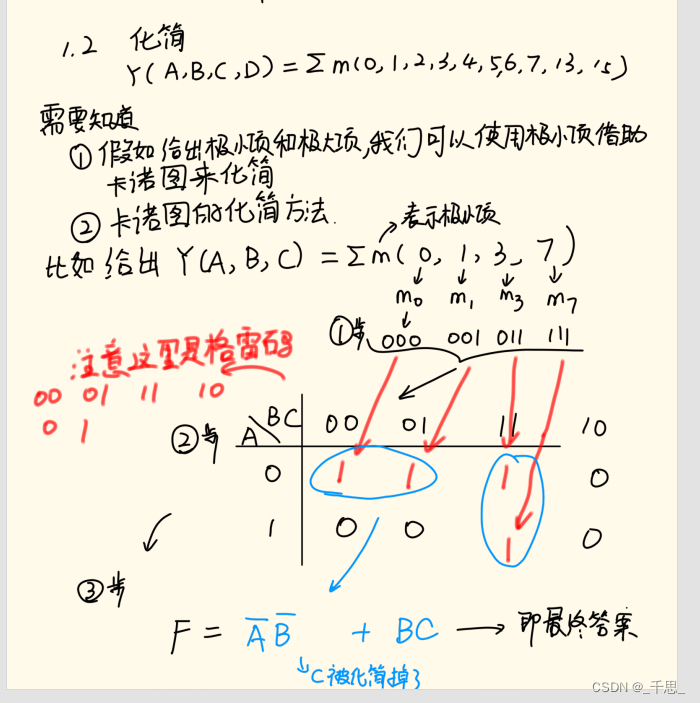 1.2 化简
Y(A,B,C,D)=Σm(0,1,2,3,4,5,6,7,13,15)
需要知道
① 假如给出极小项和极大项,我们可以使用极小项借助
卡诺图来化简
② 卡诺图的化简方法.
表示极小项
比如给出 Y(A,B,C)=Σm(0,1,3,7)
m0 m1 m3 m7
①步 000 001 011 111
注意这里是格雷码
00 01 11 10
0 1
②步 A BC 00 01 11 10
0 1 1 1 0
1 0 0 1 0
③步
F = A̅ B̅ + BC → 即最终答案
↳C被化简掉了
CSDN @_千思_